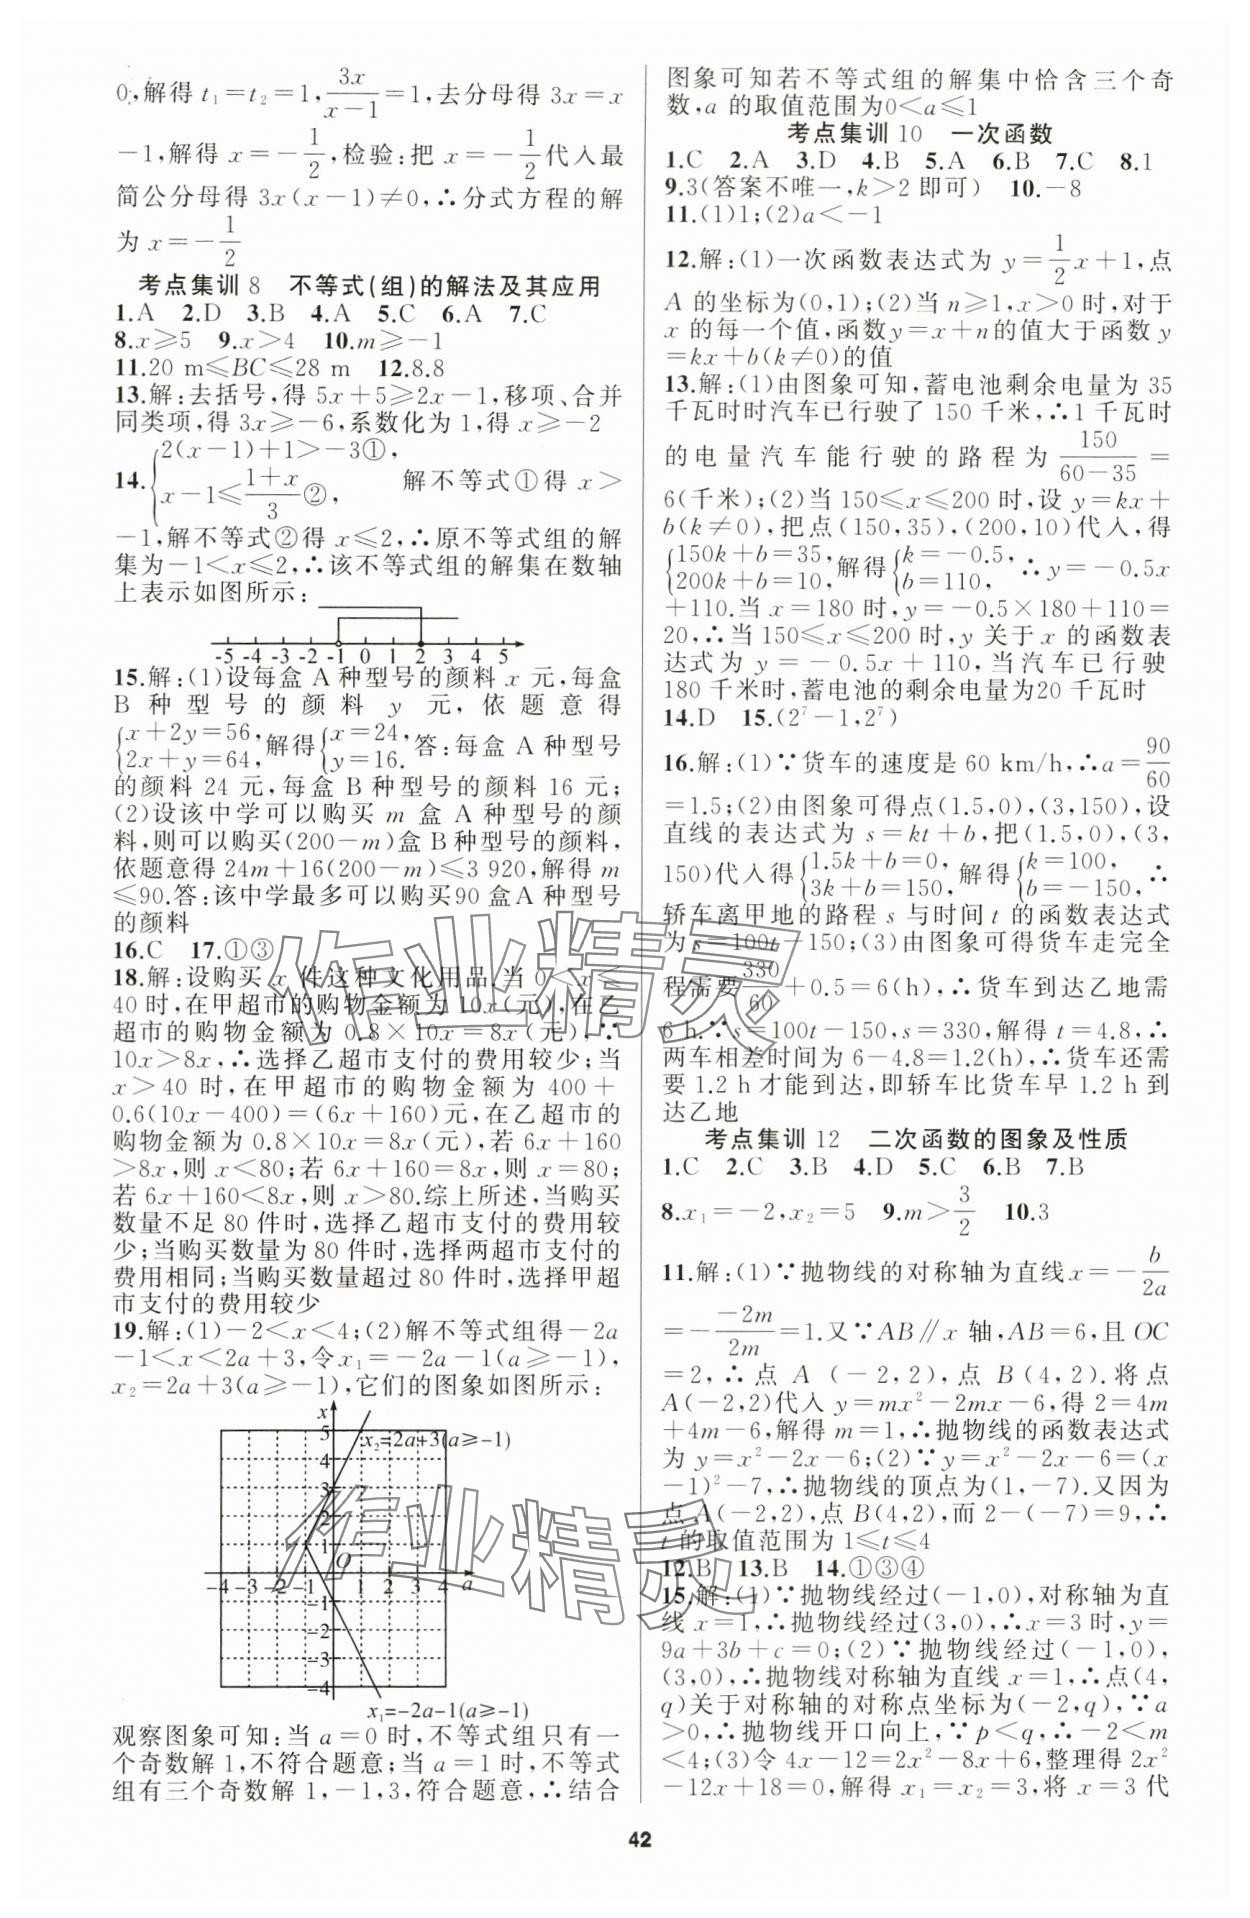 0,解得 t₁=t₂=1,3x/(x-1)=1,去分母得 3x=x
-1,解得 x=-1/2,检验:把 x=-1/2代入最
简公分母得 3x(x-1)≠0,∴分式方程的解
为 x=-1/2
考点集训 8 不等式(组)的解法及其应用
1.A 2.D 3.B 4.A 5.C 6.A 7.C
8.x≥5 9.x>4 10.m≥-1
11.20 m≤BC≤28 m 12.8.8
13.解:去括号,得 5x+5≥2x-1,移项、合并
同类项,得 3x≥-6,系数化为 1,得 x≥-2
14.{2(x-1)+1>-3①, x-1≤(1+x)/3②, 解不等式①得 x>
-1,解不等式②得 x≤2,∴原不等式组的解
集为-1<x≤2,∴该不等式组的解集在数轴
上表示如图所示:
-5 -4 -3 -2 -1 0 1 2 3 4 5
15.解:(1)设每盒 A 种型号的颜料 x 元,每盒
B 种型号的颜料 y 元,依题意得
{x+2y=56, 2x+y=64, 解得{x=24, y=16. 答:每盒 A 种型号
的颜料 24 元,每盒 B 种型号的颜料 16 元;
(2)设该中学可以购买 m 盒 A 种型号的颜
料,则可以购买(200-m)盒 B 种型号的颜料,
依题意得 24m+16(200-m)≤3 920,解得 m
≤90.答:该中学最多可以购买90 盒A 种型号
的颜料
16.C 17.①③
18.解:设购买 x 件这种文化用品.当 0<x≤
40 时,在甲超市的购物金额为 10x(元),在乙
超市的购物金额为 0.8×10x=8x(元),∵
10x>8x,∴选择乙超市支付的费用较少;当
x>40 时,在甲超市的购物金额为 400+
0.6(10x-400)=(6x+160)元,在乙超市的
购物金额为 0.8×10x=8x(元),若 6x+160
>8x,则 x<80;若 6x+160=8x,则 x=80;
若 6x+160<8x,则 x>80.综上所述,当购买
数量不足 80 件时,选择乙超市支付的费用较
少;当购买数量为 80 件时,选择两超市支付的
费用相同;当购买数量超过 80 件时,选择甲超
市支付的费用较少
19.解:(1)-2<x<4;(2)解不等式组得-2a
-1<x<2a+3,令x₁=-2a-1(a≥-1),
x₂=2a+3(a≥-1),它们的图象如图所示:
x
5
x₂=2a+3(a≥-1)
4
3
2
1
O
-4 -3 -2 -1 1 2 3 4 a
-1
-2
-3
-4
x₁=-2a-1(a≥-1)
观察图象可知:当 a=0 时,不等式组只有一
个奇数解 1,不符合题意;当 a=1 时,不等式
组有三个奇数解 1,-1,3,符合题意,∴结合
图象可知若不等式组的解集中恰含三个奇
数,a 的取值范围为0<a≤1
考点集训 10 一次函数
1.C 2.A 3.D 4.B 5.A 6.B 7.C 8.1
9.3(答案不唯一,k>2 即可) 10.-8
11.(1)1;(2)a<-1
12.解:(1)一次函数表达式为 y=1/2x+1,点
A 的坐标为(0,1);(2)当 n≥1,x>0 时,对于
x 的每一个值,函数y=x+n的值大于函数 y
=kx+b(k≠0)的值
13.解:(1)由图象可知,蓄电池剩余电量为 35
千瓦时时汽车已行驶了 150 千米,∴1 千瓦时
的电量汽车能行驶的路程为 150/(60-35)=
6(千米);(2)当 150≤x≤200 时,设 y=kx+
b(k≠0),把点(150,35),(200,10)代入,得
{150k+b=35, 200k+b=10, 解得{k=-0.5, b=110, ∴y=-0.5x
+110.当 x=180 时,y=-0.5×180+110=
20,∴当 150≤x≤200 时,y 关于 x 的函数表
达式为 y=-0.5x+110,当汽车已行驶
180 千米时,蓄电池的剩余电量为20 千瓦时
14.D 15.(2⁷-1,2⁷)
16.解:(1)∵货车的速度是 60 km/h,∴a=90/60
=1.5;(2)由图象可得点(1.5,0),(3,150),设
直线的表达式为 s=kt+b,把(1.5,0),(3,
150)代入得{1.5k+b=0, 3k+b=150, 解得{k=100, b=-150, ∴
轿车离甲地的路程 s 与时间 t 的函数表达式
为 s=100t-150;(3)由图象可得货车走完全
程需要330/60+0.5=6(h),∴货车到达乙地需
6 h.∵s=100t-150,s=330,解得 t=4.8,∴
两车相差时间为 6-4.8=1.2(h),∴货车还需
要 1.2 h 才能到达,即轿车比货车早 1.2 h 到
达乙地
考点集训 12 二次函数的图象及性质
1.C 2.C 3.B 4.D 5.C 6.B 7.B
8.x₁=-2,x₂=5 9.m>3/2 10.3
11.解:(1)∵抛物线的对称轴为直线x=-b/2a
=-(-2m)/2m=1.又∵AB∥x 轴,AB=6,且 OC
=2,∴点 A(-2,2),点 B(4,2).将点
A(-2,2)代入 y=mx²-2mx-6,得 2=4m
+4m-6,解得 m=1,∴抛物线的函数表达式
为 y=x²-2x-6;(2)∵y=x²-2x-6=(x
-1)²-7,∴抛物线的顶点为(1,-7).又因为
点 A(-2,2),点 B(4,2),而 2-(-7)=9,∴
t 的取值范围为 1≤t≤4
12.B 13.B 14.①③④
15.解:(1)∵抛物线经过(-1,0),对称轴为直
线 x=1,∴抛物线经过(3,0),∴x=3 时,y=
9a+3b+c=0;(2)∵抛物线经过(-1,0),
(3,0),∴抛物线对称轴为直线 x=1,∴点(4,
q)关于对称轴的对称点坐标为(-2,q),∵a
>0,∴抛物线开口向上,∵p<q,∴-2<m
<4;(3)令 4x-12=2x²-8x+6,整理得 2x²
-12x+18=0,解得 x₁=x₂=3,将 x=3 代
42
作业精灵
作业精灵